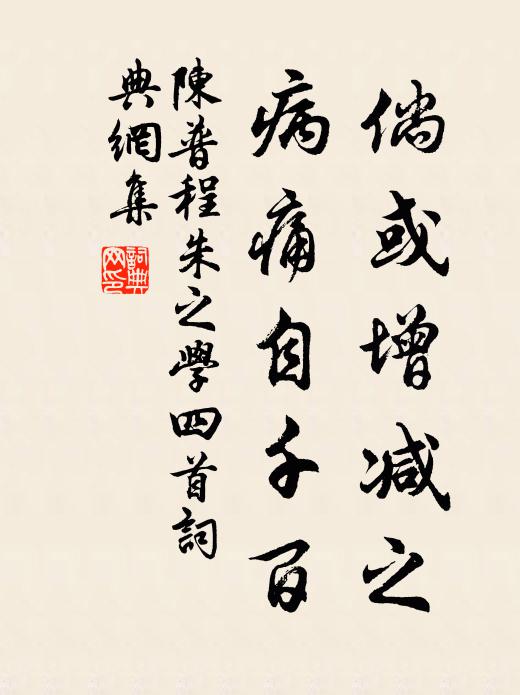 倘或增減之
病痛自千百
陳普程朱之學四首詞
典網集
詞典
网印